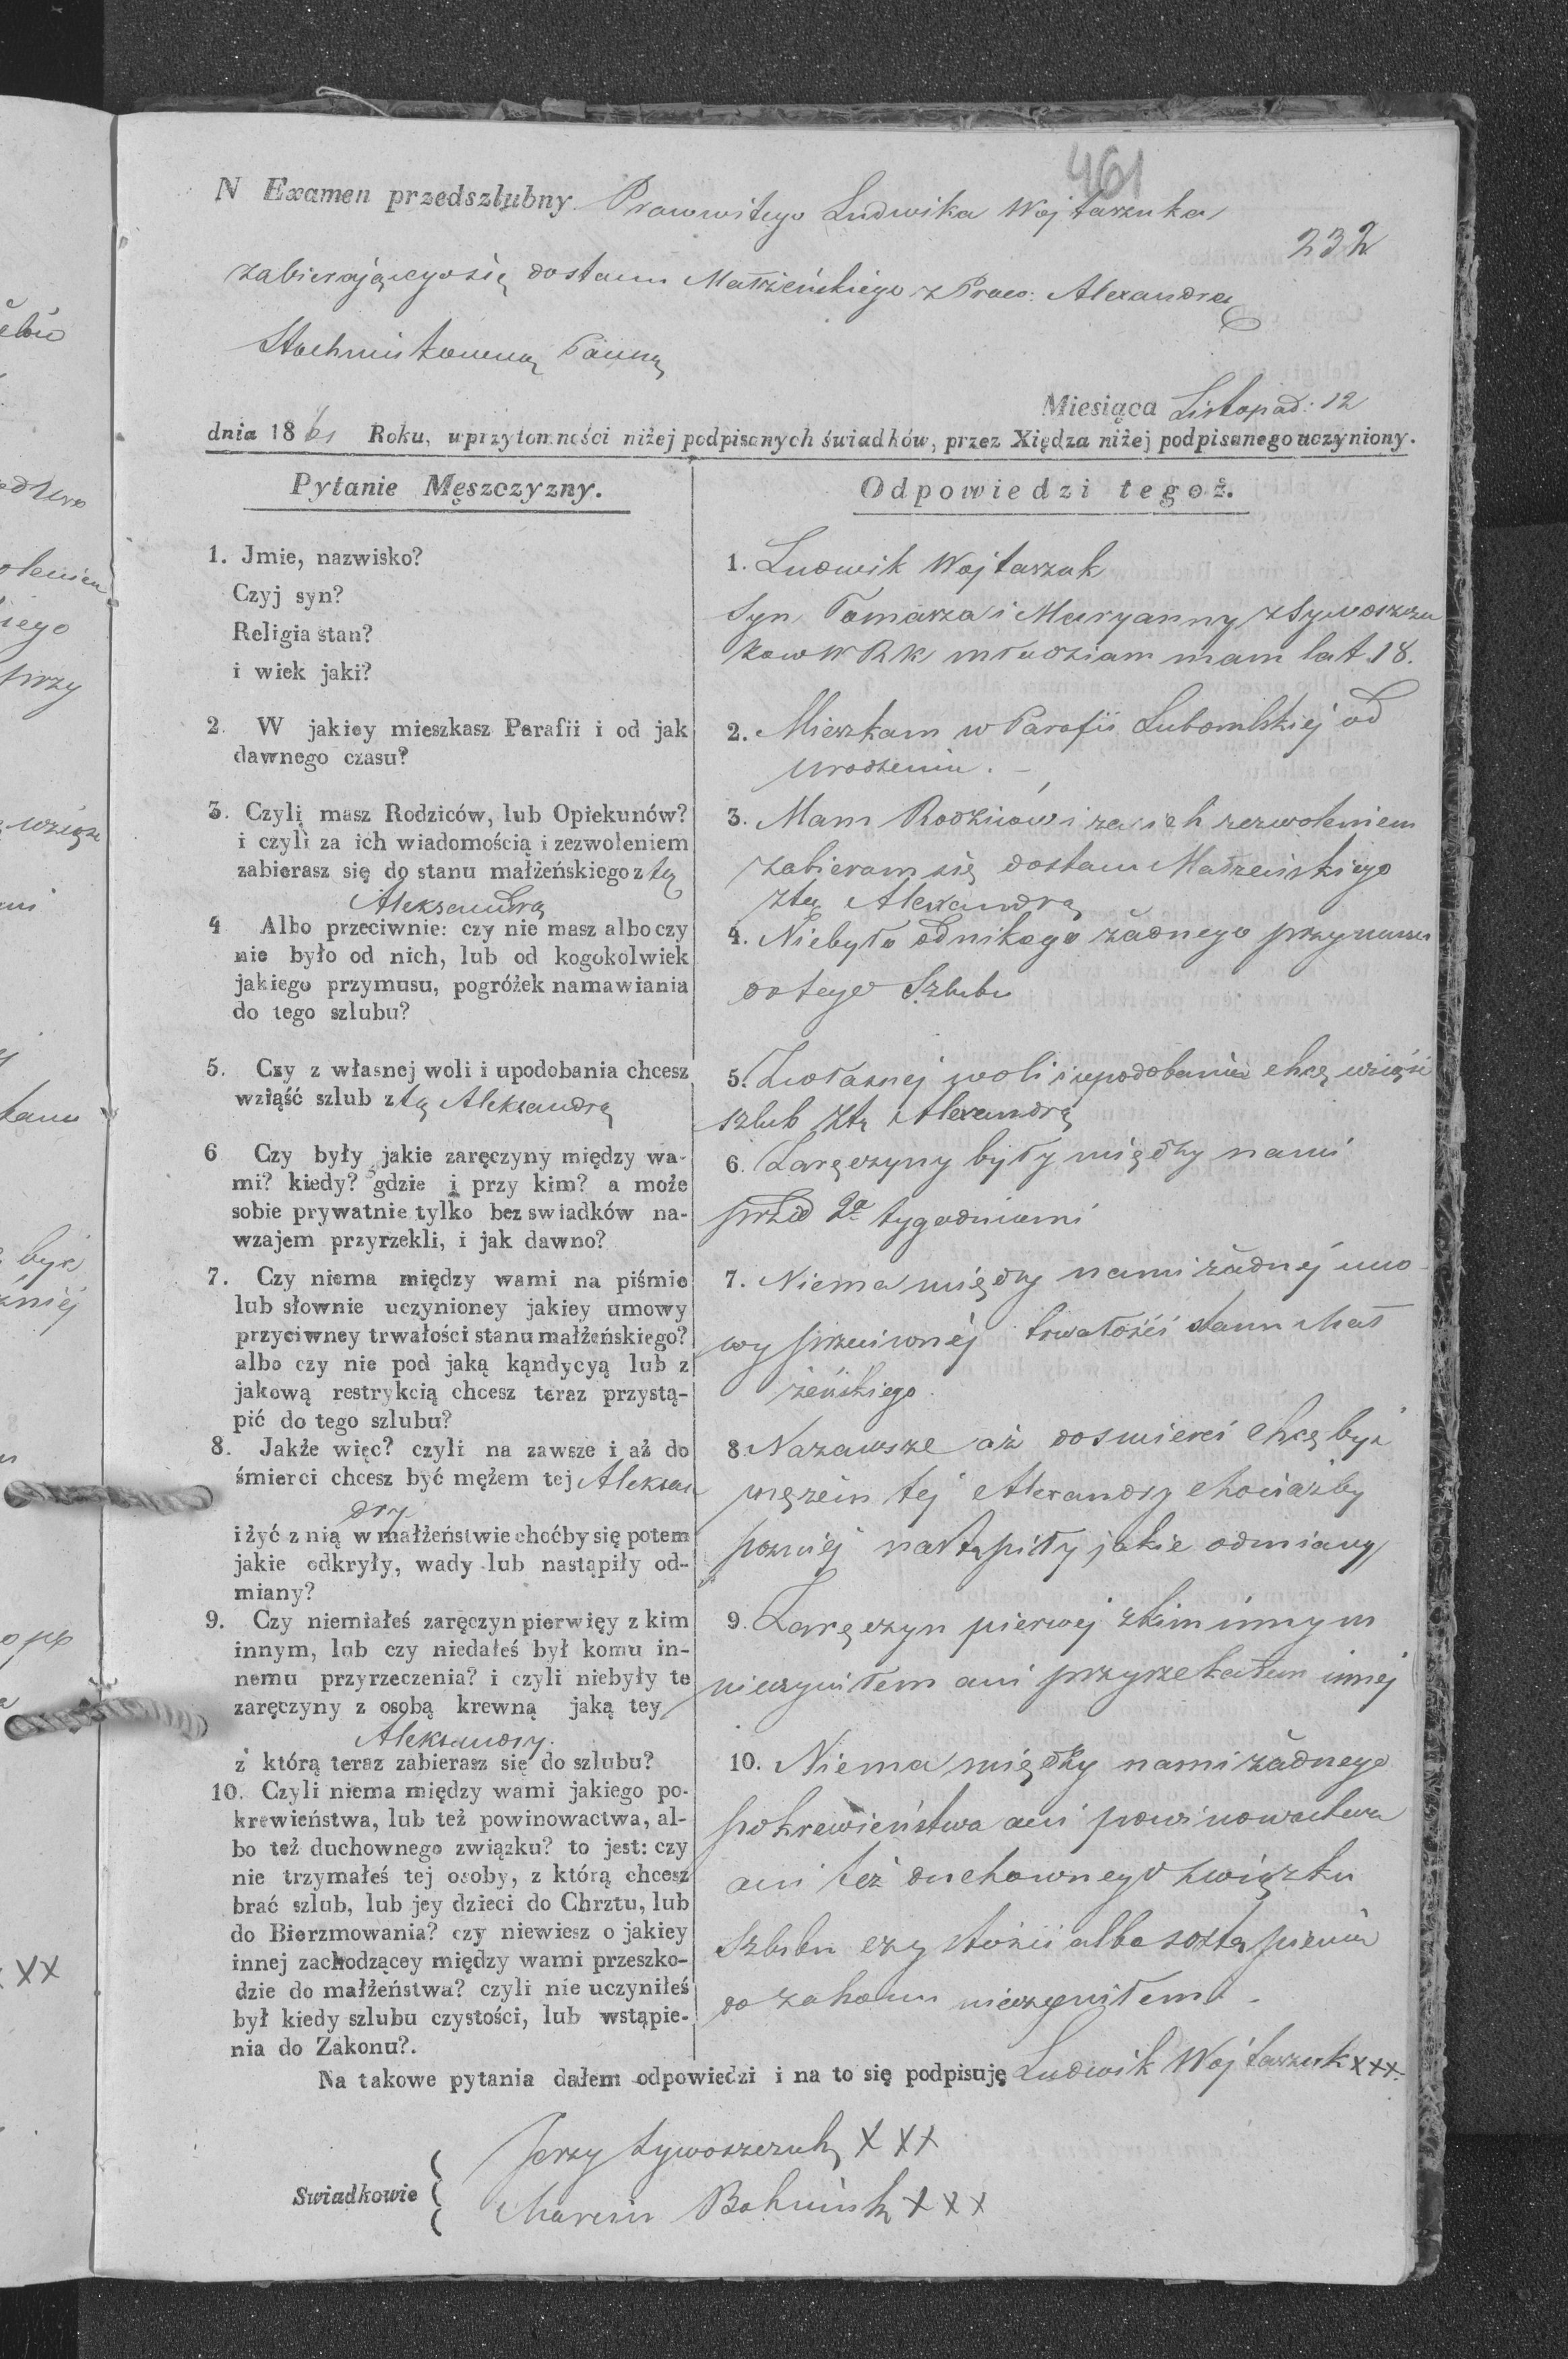 461
N Examen przedszlubny Prawowitego Ludwika Wojtaszuka
232
zabierającyosię dostanu Małżeńskiego z Praw: Alexandrą
Panną
Miesiąca Listopad: 12
dnia 1861 Roku, uprzytomności niżej podpisanych świadków, przez Xiędza niżej podpisanego uczyniony.
Pytanie Męszczyzny.
1. Jmie, nazwisko?
Czyj syn?
Religia stan?
i wiek jaki?
2. W jakiey mieszkasz Parafii i od jak
dawnego czasu?
3. Czyli masz Rodziców, lub Opiekunów?
i czyli za ich wiadomością i zezwoleniem
zabierasz się do stanu małżeńskiego z tą
Aleksandrą
4 Albo przeciwnie: czy nie masz albo czy
nie było od nich, lub od kogokolwiek
jakiego przymusu, pogróżek namawiania
do tego szlubu?
5. Czy z własnej woli i upodobania chcesz
wziąść szlub z tą Aleksandrą
6 Czy były jakie zaręczyny między wa-
mi? kiedy? gdzie i przy kim? a może
sobie prywatnie tylko bez swiadków na-
wzajem przyrzekli, i jak dawno?
7. Czy niema między wami na piśmie
lub słownie uczynioney jakiey umowy
przyciwney trwałości stanu małżeńskiego?
albo czy nie pod jaką kąndycyą lub z
jakową restrykcią chcesz teraz przystą-
pić do tego szlubu?
8. Jakże więc? czyli na zawsze i aż do
śmierci chcesz być mężem tej Aleksan
dry
i żyć z nią w małżeństwie choćby się potem
jakie odkryły, wady lub nastąpiły od-
miany?
9. Czy niemiałeś zaręczyn pierwięy z kim
innym, lub czy niedałeś był komu in-
nemu przyrzeczenia? i czyli niebyły te
zaręczyny z osobą krewną jaką tey
Aleksandry.
z którą teraz zabierasz się do szlubu?
10. Czyli niema między wami jakiego po-
krewieństwa, lub też powinowactwa, al-
bo też duchownego związku? to jest: czy
nie trzymałeś tej osoby, z którą chcesz
brać szlub, lub jey dzieci do Chrztu, lub
do Bierzmowania? czy niewiesz o jakiey
innej zachodzącey między wami przeszko-
dzie do małżeństwa? czyli nie uczyniłeś
był kiedy szlubu czystości, lub wstąpie-
nia do Zakonu?.
Odpowiedzi tegoż.
1. Ludwik Wojtaszuk
Syn Tomasza i Maryanny z Tywoszczu
kow W RK młodzian mam lat 18.
2. Mieszkam w Parafii Lubomlskiej od
urodzenia. –
3. Mam Rodziców i za ich zezwoleniem
zabieram się dostanu Małżeńskiego
ztą Alexandrą
4. Niebyło odnikogo żadnego przymusu
dotego Szlubu
5. Zwłasnej woli i upodobania chcę wziąść
szlub ztą Alexandrą
6. Zaręczyny były między nami
przed 2a tygodniami
7. Niema między nami żadnej umo
wy przeciwnéj trwałości stanu Mał
żeńskiego.
8. Nazawsze aż dosmierci chcę być
mężem tej Alexandry chociażby
pozniej nastąpiły jakie odmiany
9. Zaręczyn pierwej zkim innym
nieczyniłem ani przyrzekałem innej
10. Niema między nami żadnego
pokrewieństwa ani powinowactwa
ani też duchownego związku
Szlubu czystości albo
do zakonu nieczyniłem. -
Na takowe pytania dałem odpowiedzi i na to się podpisuję Ludwik Wojtaszuk xxx.
Jerzy Tywoszczuk XXX
Swiadkowie
Marcin XXX